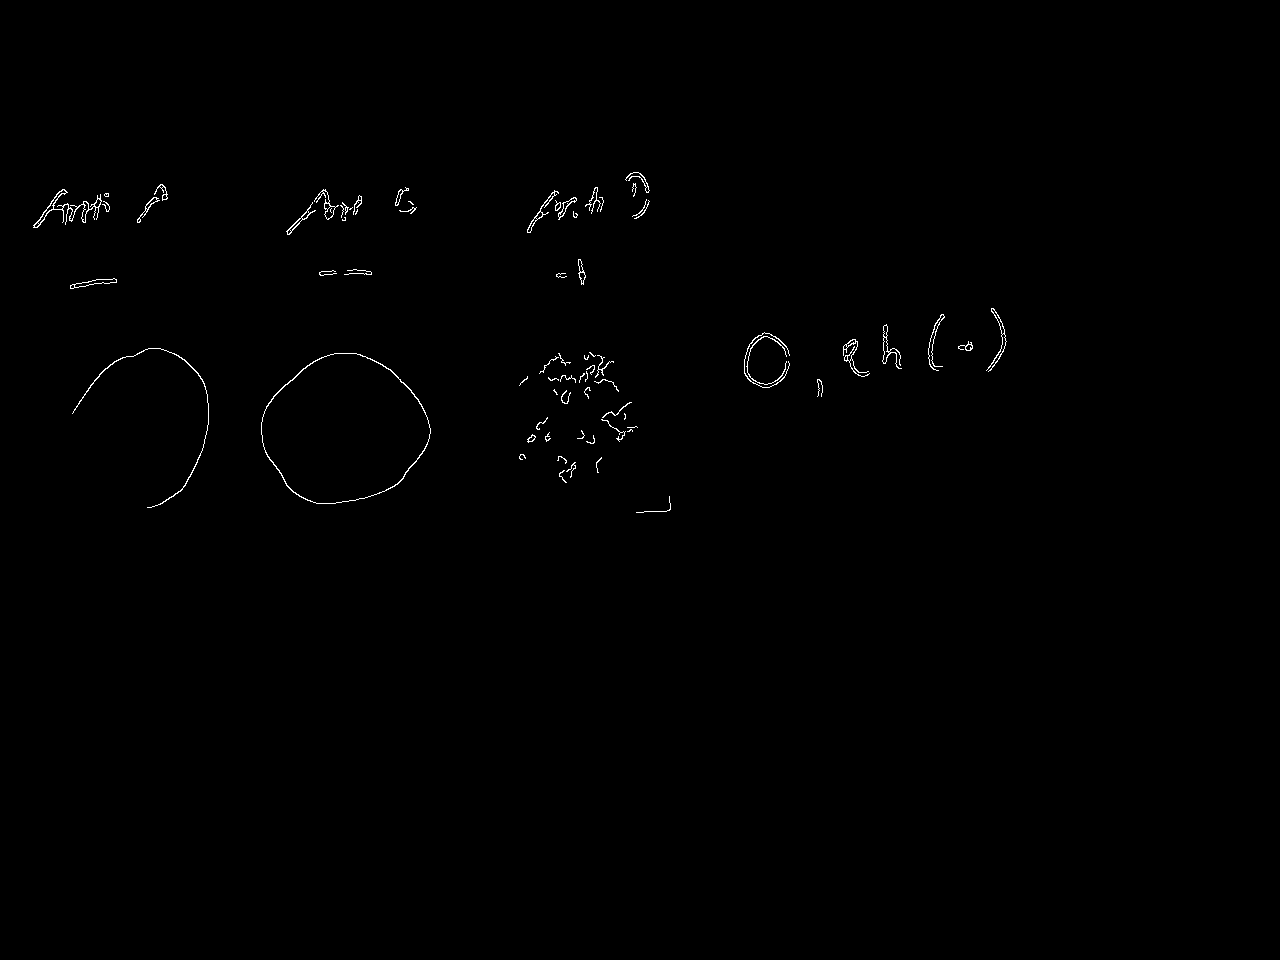 Anti A Anti B Anti D
O, Rh (-)